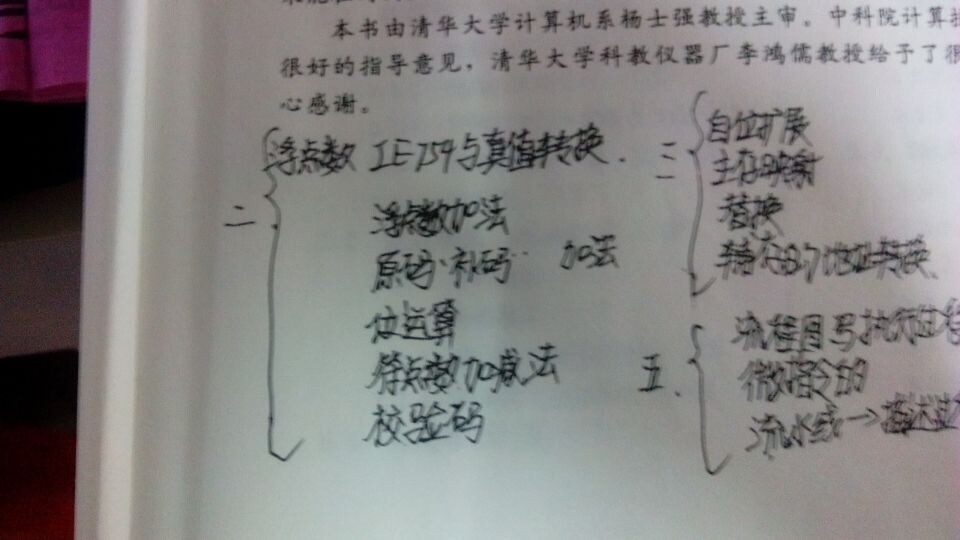 本书由清华大学计算机系杨士强教授主审。中科院计算技
很好的指导意见，清华大学科教仪器厂李鸿儒教授给予了很
心感谢。
二、
浮点数 IE754与真值转换.
浮点数加法
原码·补码 加法
位运算
符点数加减法
校验码
三
自位扩展
主存映射
替换
转换
五、
流程图写执行过程
微指令的
流水线→描述